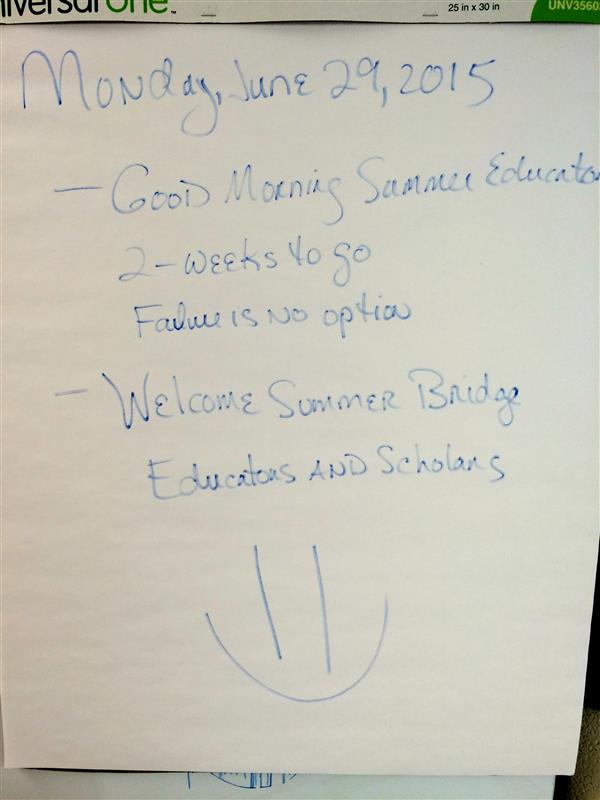 niversalOne™
25 in x 30 in
UNV3560
Monday, June 29, 2015
— Good Morning Summer Educato
2-weeks to go
Failure is no option
— Welcome Summer Bridge
Educators and Scholars